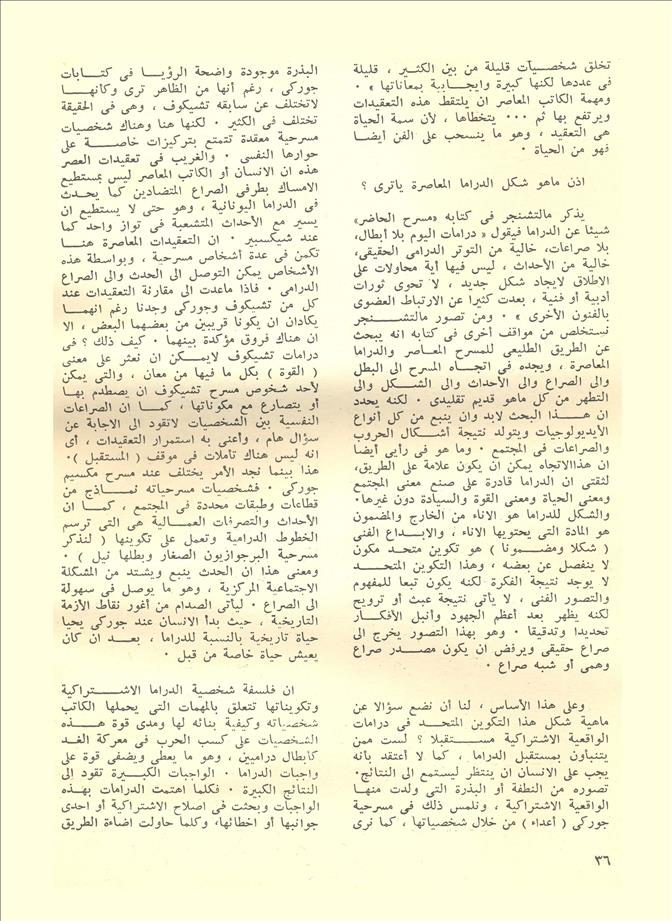 تخلق شخصيات قليلة من بين الكثير ، قليلة
فى عددها لكنها كبيرة وايجابية بمعاناتها » ٠
ومهمة الكاتب المعاصر ان يلتقط هذه التعقيدات
ويرتفع بها ثم ٠٠٠ يتخطاها ، لأن سمة الحياة
هى التعقيد ، وهو ما ينسحب على الفن أيضا
فهو من الحياة ٠
اذن ماهو شكل الدراما المعاصرة ياترى ؟
يذكر مالتشنجر فى كتابه «مسرح الحاضر»
شيئا عن الدراما فيقول « درامات اليوم بلا أبطال،
بلا صراعات، خالية من التوتر الدرامى الحقيقى،
خالية من الأحداث ، ليس فيها أية محاولات على
الاطلاق لايجاد شكل جديد ، لا تحوى ثورات
أدبية أو فنية ، بعدت كثيرا عن الارتباط العضوى
بالفنون الأخرى » ٠ ومن تصور مالتشنجر
نستخلص من مواقف أخرى فى كتابه انه يبحث
عن الطريق الطليعى للمسرح المعاصر والدراما
المعاصرة ، ويجده فى اتجاه المسرح الى البطل
والى الصراع والى الأحداث والى الشكل والى
التطهر من كل ماهو قديم تقليدى ٠ لكنه يحدد
ان هذا البحث لابد وان ينبع من كل أنواع
الأيديولوجيات ويتولد نتيجة أشكال الحروب
والصراعات فى المجتمع ٠ وما هو فى رأيى أيضا
ان هذاالاتجاه يمكن ان يكون علامة على الطريق،
لثقتى ان الدراما قادرة على صنع معنى المجتمع
ومعنى الحياة ومعنى القوة والسيادة دون غيرها٠
والشكل للدراما هو الاناء من الخارج والمضمون
هو المادة التى يحتويها الاناء ، والابداع الفنى
( شكلا ومضمونا ) هو تكوين متحد مكون
لا ينفصل عن بعضه ، وهذا التكوين المتحد
لا يوجد نتيجة الفكرة لكنه يكون تبعا للمفهوم
والتصور الفنى ، لا يأتى نتيجة عبث أو ترويج
لكنه يظهر بعد أعظم الجهود وأنبل الأفكار
تحديدا وتدقيقا ٠ وهو بهذا التصور يخرج الى
صراع حقيقى ويرفض ان يكون مصدر صراع
وهمى أو شبه صراع ٠
وعلى هذا الأساس ، لنا أن نضع سؤالا عن
ماهية شكل هذا التكوين المتحد فى درامات
الواقعية الاشتراكية مستقبلا ؟ لست ممن
يتنبأون بمستقبل الدراما ، كما لا أعتقد بأنه
يجب على الانسان ان ينتظر ليستمع الى النتائج٠
تصوره من النطفة أو البذرة التى ولدت منها
الواقعية الاشتراكية ، ونلمس ذلك فى مسرحية
جوركى ( أعداء ) من خلال شخصياتها ، كما نرى
البذرة موجودة واضحة الرؤيا فى كتابات
جوركى ، رغم أنها من الظاهر ترى وكأنها
لاتختلف عن سابقه تشيكوف ، وهى فى الحقيقة
تختلف فى الكثير ٠ لكنها هنا وهناك شخصيات
مسرحية معقدة تتمتع بتركيزات خاصة على
حوارها النفسى ٠ والغريب فى تعقيدات العصر
هذه ان الانسان أو الكاتب المعاصر ليس بمستطيع
الامساك بطرفى الصراع المتضادين كما يحدث
فى الدراما اليونانية ، وهو حتى لا يستطيع ان
يسير مع الأحداث المتشعبة فى تواز واحد كما
عند شيكسبير ٠ ان التعقيدات المعاصرة هنا
تكمن فى عدة أشخاص مسرحية ، وبواسطة هذه
الأشخاص يمكن التوصل الى الحدث والى الصراع
الدرامى ٠ فاذا ماعدت الى مقارنة التعقيدات عند
كل من تشيكوف وجوركى وجدنا رغم انهما
يكادان ان يكونا قريبين من بعضهما البعض ، الا
ان هناك فروق مؤكدة بينهما ٠ كيف ذلك ؟ فى
درامات تشيكوف لايمكن ان نعثر على معنى
( القوة ) بكل ما فيها من معان ، والتى يمكن
لأحد شخوص مسرح تشيكوف ان يصطدم بها
أو يتصارع مع مكوناتها ، كما ان الصراعات
النفسية بين الشخصيات لاتقود الى الاجابة عن
سؤال هام ، وأعنى به استمرار التعقيدات ، أى
انه ليس هناك تأملات فى موقف ( المستقبل )٠
هذا بينما نجد الأمر يختلف عند مسرح مكسيم
جوركى ٠ فشخصيات مسرحياته نماذج من
قطاعات وطبقات محددة فى المجتمع ، كما ان
الأحداث والتصرفات العمالية هى التى ترسم
الخطوط الدرامية وتعمل على تكوينها ( لنذكر
مسرحية البرجوازيون الصغار وبطلها نيل ) ٠
ومعنى هذا ان الحدث ينبع ويشتد من المشكلة
الاجتماعية المركزية ، وهو ما يوصل فى سهولة
الى الصراع ٠ ليأتى الصدام من أغور نقاط الأزمة
التاريخية ، حيث بدأ الانسان عند جوركى يحيا
حياة تاريخية بالنسبة للدراما ، بعد ان كان
يعيش حياة خاصة من قبل ٠
ان فلسفة شخصية الدراما الاشتراكية
وتكويناتها تتعلق بالمهمات التى يحملها الكاتب
شخصياته وكيفية بنائه لها ومدى قوة هذه
الشخصيات على كسب الحرب فى معركة الغد
كأبطال دراميين ، وهو ما يعطى ويضفى قوة على
واجبات الدراما ٠ الواجبات الكبيرة تقود إلى
النتائج الكبيرة ٠ فكلما اهتمت الدرامات بهذه
الواجبات وبحثت فى اصلاح الاشتراكية أو احدى
جوانبها أو اخطائها، وكلما حاولت اضاءة الطريق
٣٦